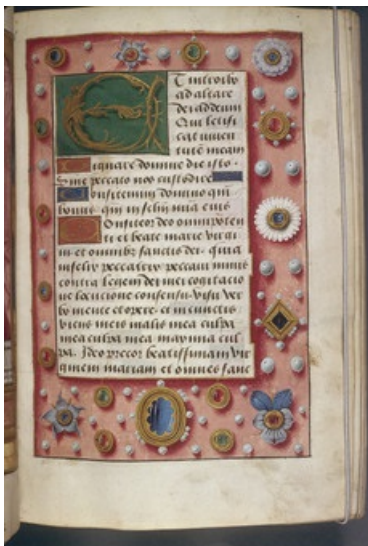 ET introibo
ad altare
dei ad deum
Qui letifi
cat iuuen
tutē meam
Dignare domine die isto
Sine peccato nos custodire
Confitemini domino qm̄
bonus qm̄ in seculū mīa eius
Confiteor deo omnipoten
ti et beate marie virgi
ni et omnibꝫ sanctis dei quia
infelix peccatrix peccaui nimis
contra legem dei mei cogitatio
ne locucione consensu visu ver
bo mente et opere et in cunctis
viciis meis malis mea culpa
mea culpa mea maxima cul
pa. Ideo precor beatissimam vir
ginem mariam et omnes sanc